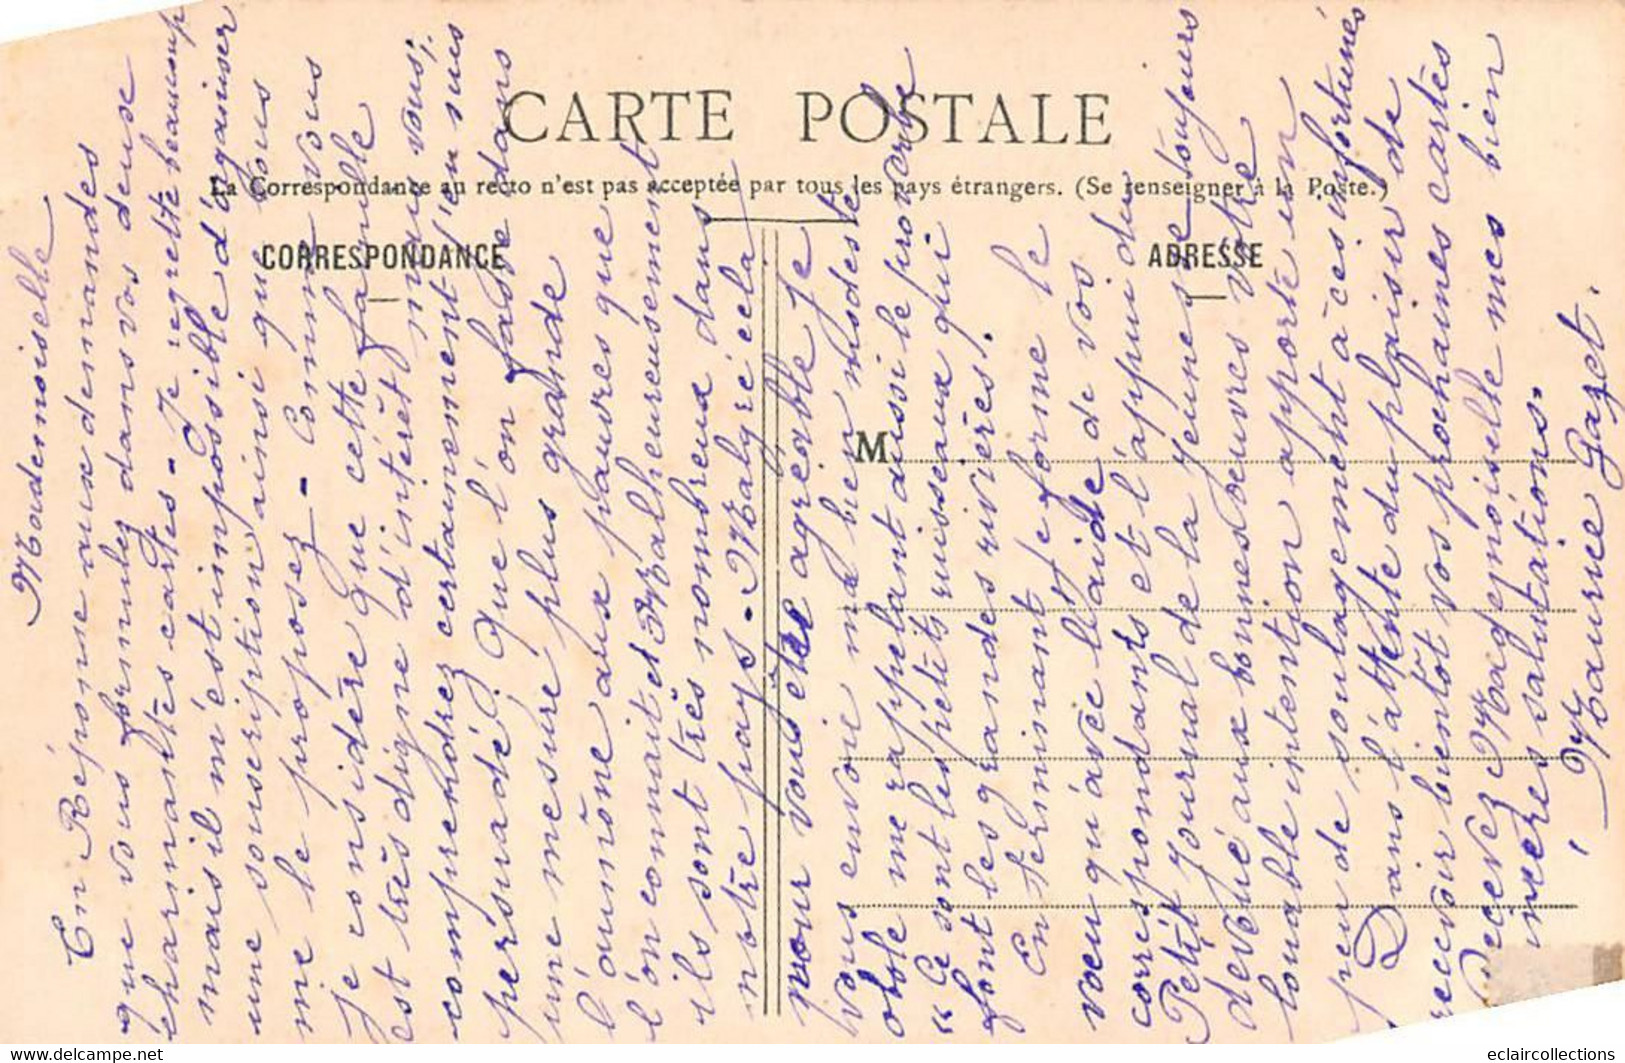 CARTE POSTALE
La Correspondance au recto n'est pas acceptée par tous les pays étrangers. (Se renseigner à la Poste.)
CORRESPONDANCE
ADRESSE
M
Mademoiselle
En Réponse aux demandes
que vous formulez dans vos deux
charmantes cartes - Je regrette beaucoup
mais il m'est impossible d'oganiser
une souscription ainsi que vous
me le proposez - Comme vous
je considère que cette famille
est très digne d'intérêt mais vous
comprendrez certainement j'en suis
persuadé. Que l'on fasse dans
une mesure plus grande
l'aumône aux pauvres que
l'on connait et Malheureusement
ils sont très nombreux dans
notre pays - Malgré cela
pour vous être agréable je
vous envoie ma bien modeste
obole me rappelant aussi le proverbe
"Ce sont les petits ruisseaux qui
font les grandes rivières.
En terminant je forme le
voeu qu'avec l'aide de vos
correspondants et l'appui du
Petit Journal de la Jeunesse toujours
dévoué aux bonnes oeuvres votre
louable intention apporte un
peu de soulagement à ces infortunés
Dans l'attente du plaisir de
recevoir bientôt vos prochaines cartes
Recevez Mademoiselle mes bien
sincères salutations.
Maurice Gazet.
www.delcampe.net
eclaircollections